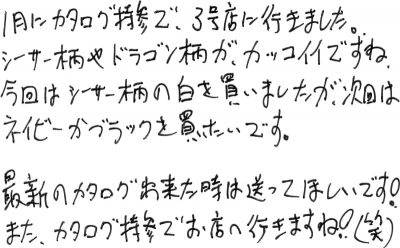 1月にカタログ持参で、3号店に行きました。
シーサー柄やドラゴン柄が、カッコイイですね
今回はシーサー柄の白を買いましたが、次回は
ネイビーかブラックを買いたいです。
最新のカタログ出来た時は送ってほしいです!
また、カタログ持参でお店へ行きますね!(笑)